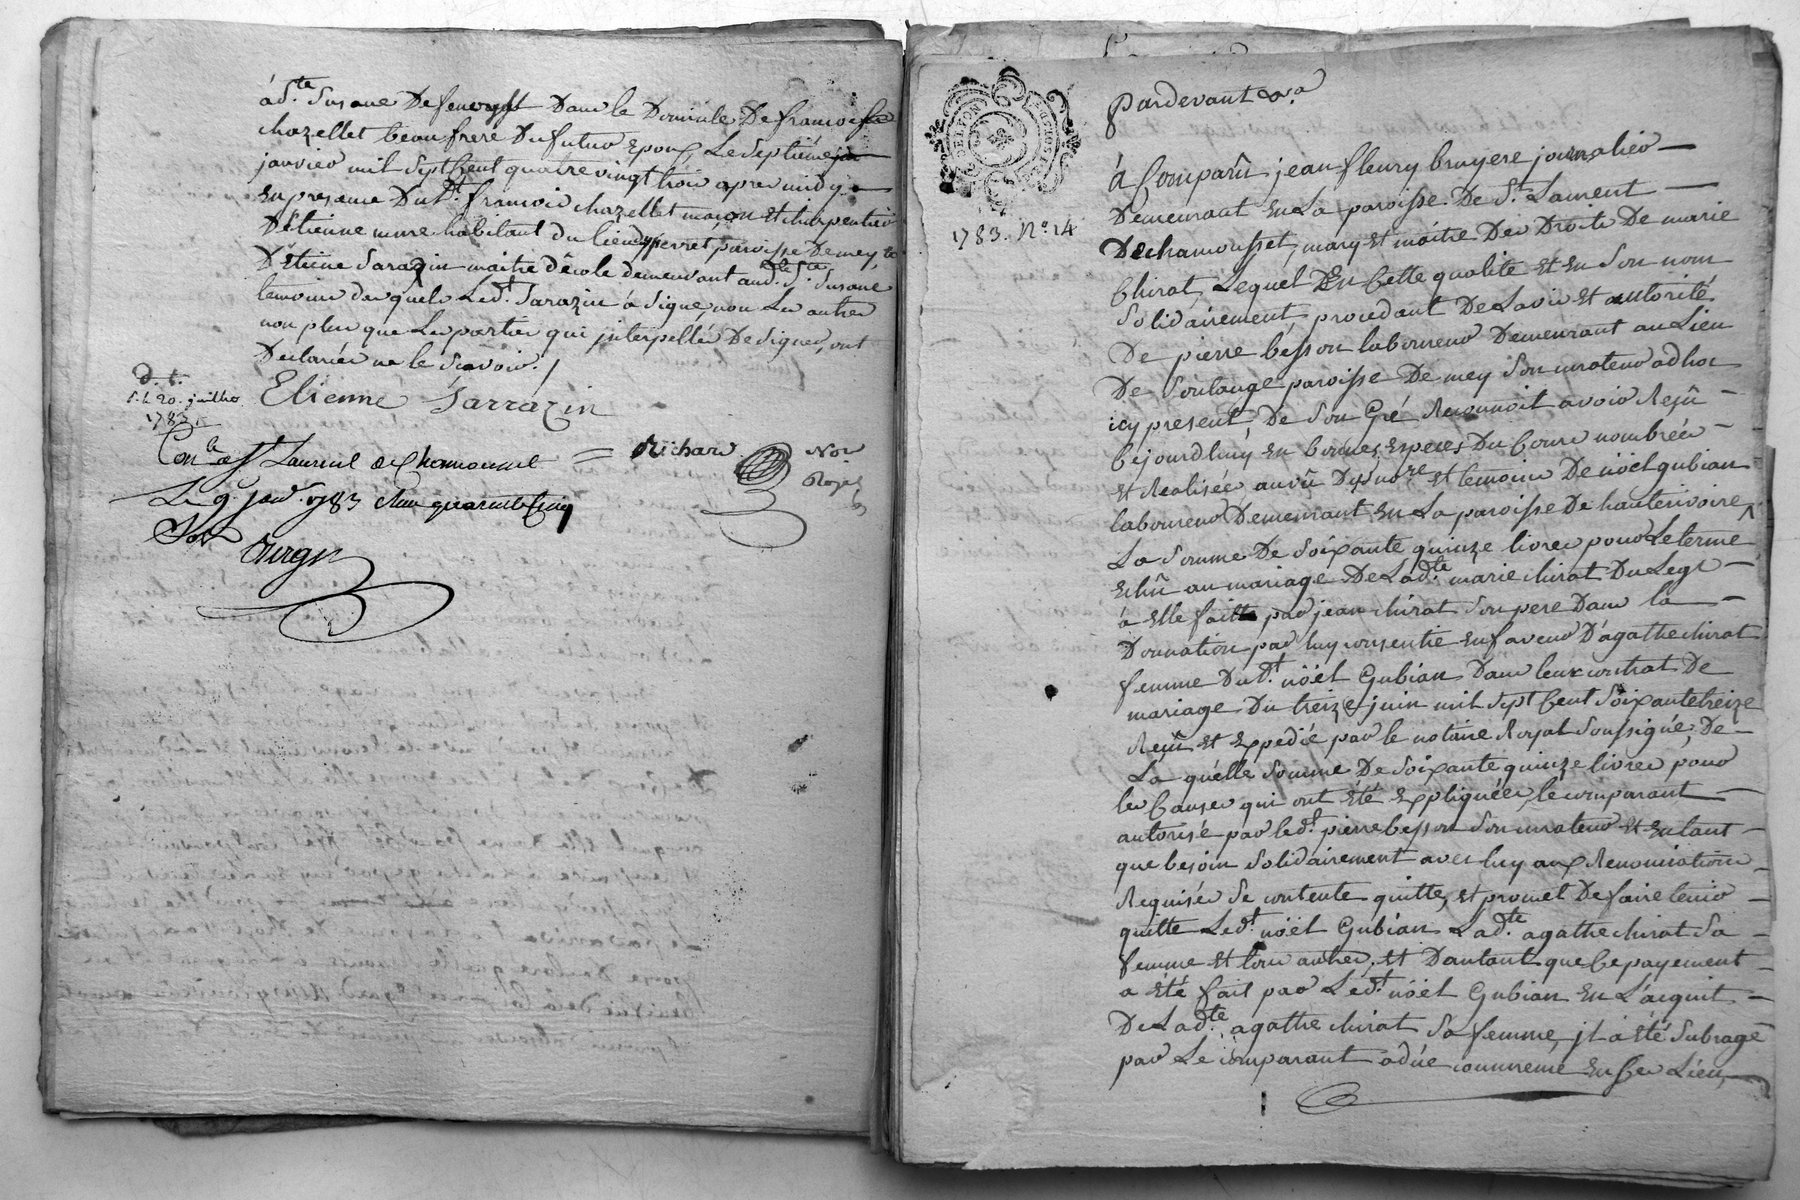 àd.te Susane Dans le Domicile De francois
chazellet beau frere Du futur Epoux, Le septième
janvier mil sept Cent quatre vingt trois apres midy
En presence Dud.t francois chazellet maçon Et charpentier
D'étienne mure habitant du lieu perret, paroisse De mey, &
D'étiene Sarazin maitre d'école demeurant aud. St.e Susane
temoins des quels Led.t Sarazin à signé, non Les autres
non plus que Les parties qui jnterpellés De signer, ont
Déclarées ne le sçavoir./
Etienne Sarrazin
1783
Con.le a St Laurent de Chamousset = Richard Not
Royal
Le 9. janv. 1783 Reçu quarante Cinq
Sols
DE LYON
1783. No. 14
Pardevant &.a
à Comparû jean fleury bruyere journalier
Demeurant En La paroisse De St. Laurent
De chamousset, mary Et maitre Des Droits De marie
Chirat, Lequel En Cette qualité Et En Son nom
Solidairement, procedant De L'avis Et autorité
De pierre besson laboureur Demeurant au Lieu
De Soulange paroisse De mey Son curateur ad hoc
icy present, De son Gré Reconnoit avoir Reçû
Cejourd'huy En bonnes Especes Du Cours nombrées
Et Réalisées au vû Du no.re Et temoins De nöel gubian
laboureur Demeurant En La paroisse De hauterivoire
La Somme De Soixante quinze livres pour Le terme
Echû au mariage De Lad.te marie chirat Du Legs
à Elle faitte par jean chirat son pere Dans la
Donnation par luy consentie En faveur D'agathe chirat
femme Dud.t nöel Gubian Dans leur contrat De
mariage Du treize juin mil sept Cent soixante treize
Reçu Et Expedié par le notaire Royal soussigné, De
La quélle Somme De Soixante quinze livres, pour
les Causes qui ont Eté Expliquées, le comparant
autorisé par led.t pierre besson Son curateur Et En tant
que besoin Solidairement avec luy aux Renonciations
Requises Se contente quitte, Et promet De faire tenir
quitte Led.t nöel Gubian Lad.te agathe chirat Sa
femme Et tous autres, Et D'autant que Ce payement
a Eté fait par Led.t nöel Gubian En L'acquit
De Lad.te agathe chirat Sa femme, jl a Eté subrogé
par Le comparant En Ses Lieu,